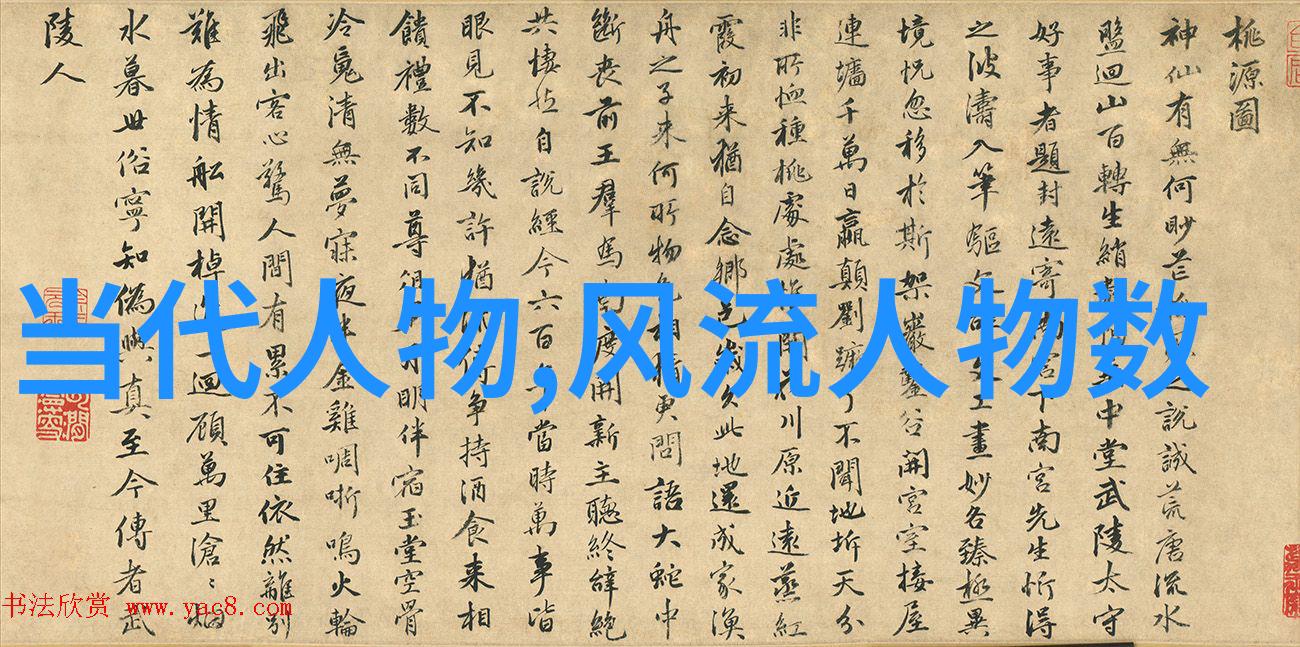 桃源圖
神仙有無何眇茫之說誠荒唐流水
盤迴山百轉生綃中堂武陵太守
好事者題封遠寄南宮下南宮先生忻得
之波濤入筆驅文辭文工畫妙各臻極異
境恍忽移於斯架巖鑿谷開宮室接屋
連墻千萬日嬴顛劉蹶了不聞地坼天分
非所恤種桃處處惟開花川原近遠蒸紅
霞初来猶自念鄉邑歲久此地還成家漁
舟之子来何所物色相猜更問語大蛇中
斷喪前王羣馬南度開新主聽終辭絕
共悽然自說經今六百年當時萬事皆
眼見不知幾許猶流傳爭持酒食来相
饋禮數不同尊俎異月明伴宿玉堂空骨
冷魂清無夢寐夜半金雞啁哳鳴火輪
飛出客心驚人間有累不可住依然離別
難為情船開棹進一迴顧萬里滄〻烟
水暮世俗寧知偽與真至今傳者武
陵人
当代人物,风流人物数
书法欣赏 www.yac8.com